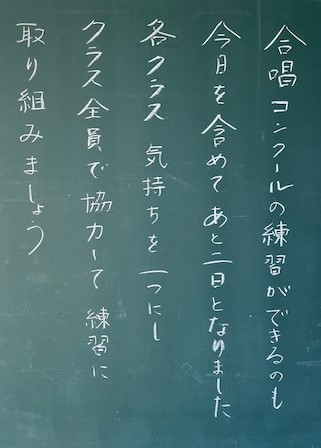 合唱コンクールの練習ができるのも
今日を含めてあと二日となりました
各クラス 気持ちを一つにし
クラス全員で協力して 練習に
取り組みましょう